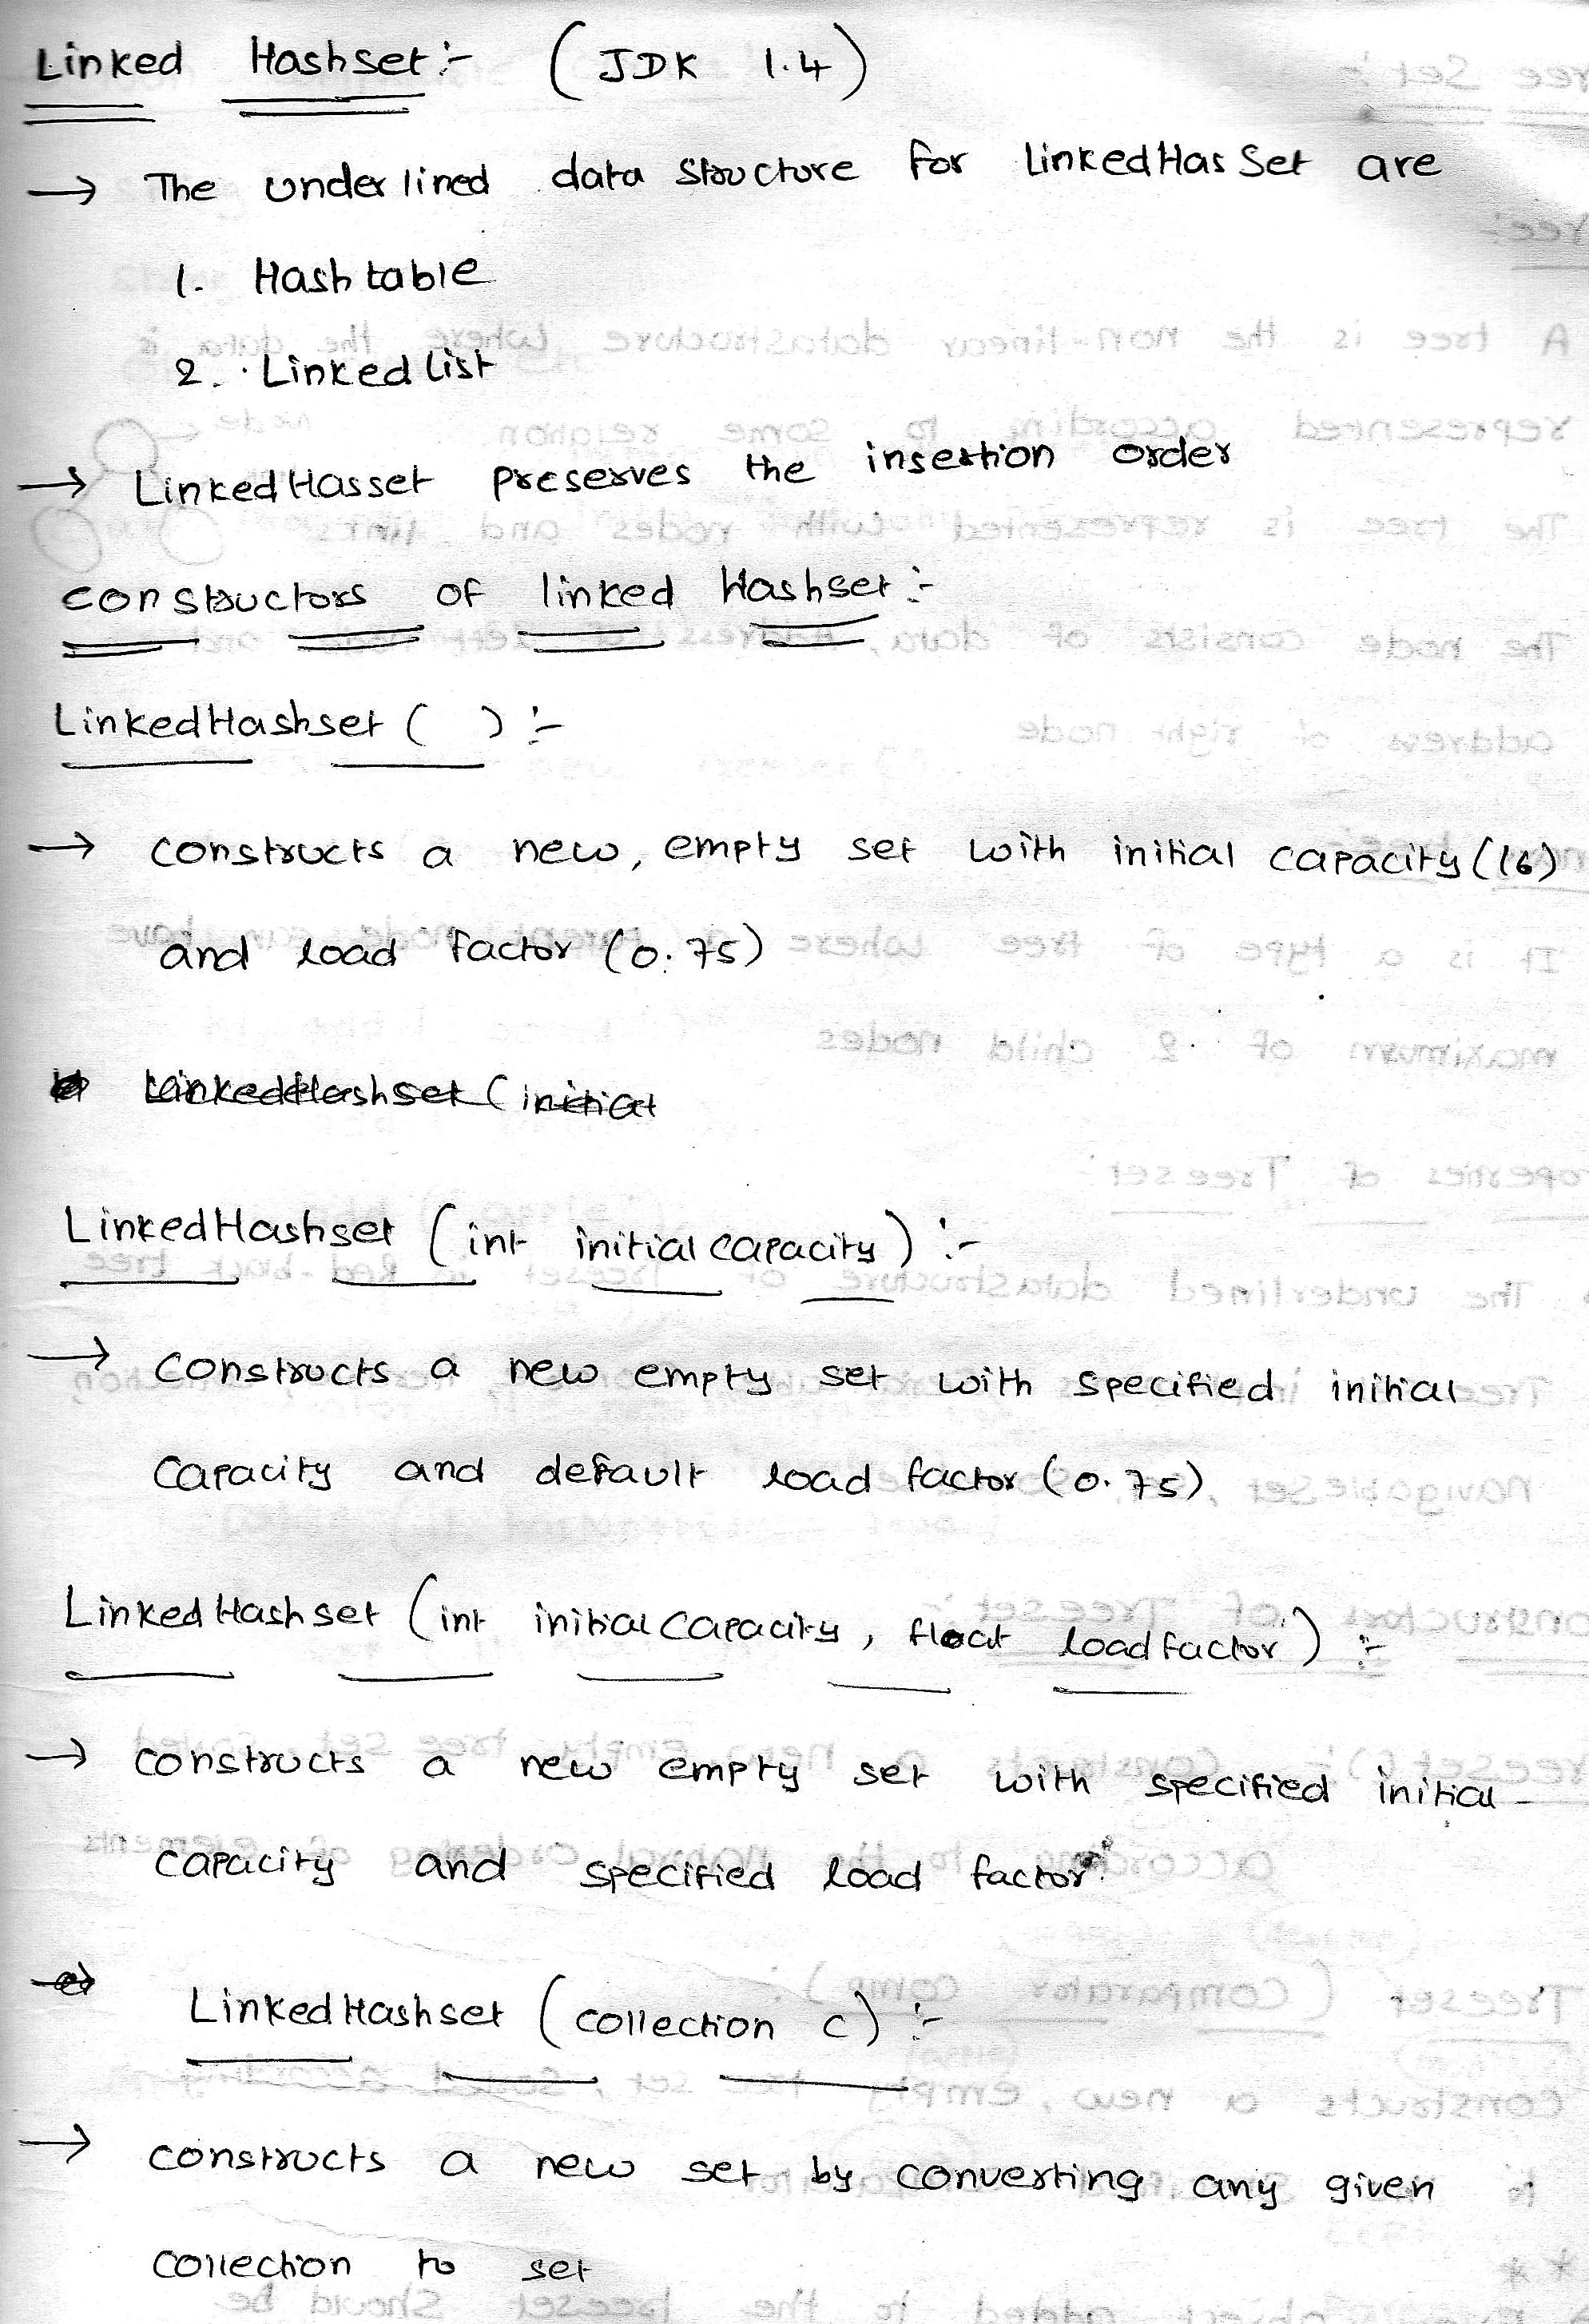 Linked Hashset :- (JDK 1.4)
→ The underlined data structure for linkedHasSet are
1. Hash table
2. Linked list
→ LinkedHasset preserves the insertion order
constructors of linked Hashset :-
LinkedHashset ( ) :-
→ constructs a new, empty set with initial capacity (16)
and load factor (0.75)
LinkedHashset (initial
LinkedHashset (int initial capacity) :-
→ constructs a new empty set with specified initial
capacity and default load factor (0.75)
LinkedHashset (int initial capacity, float loadfactor) :-
→ constructs a new empty set with specified initial
capacity and specified load factor.
LinkedHashset (collection c) :-
→ constructs a new set by converting any given
collection to set